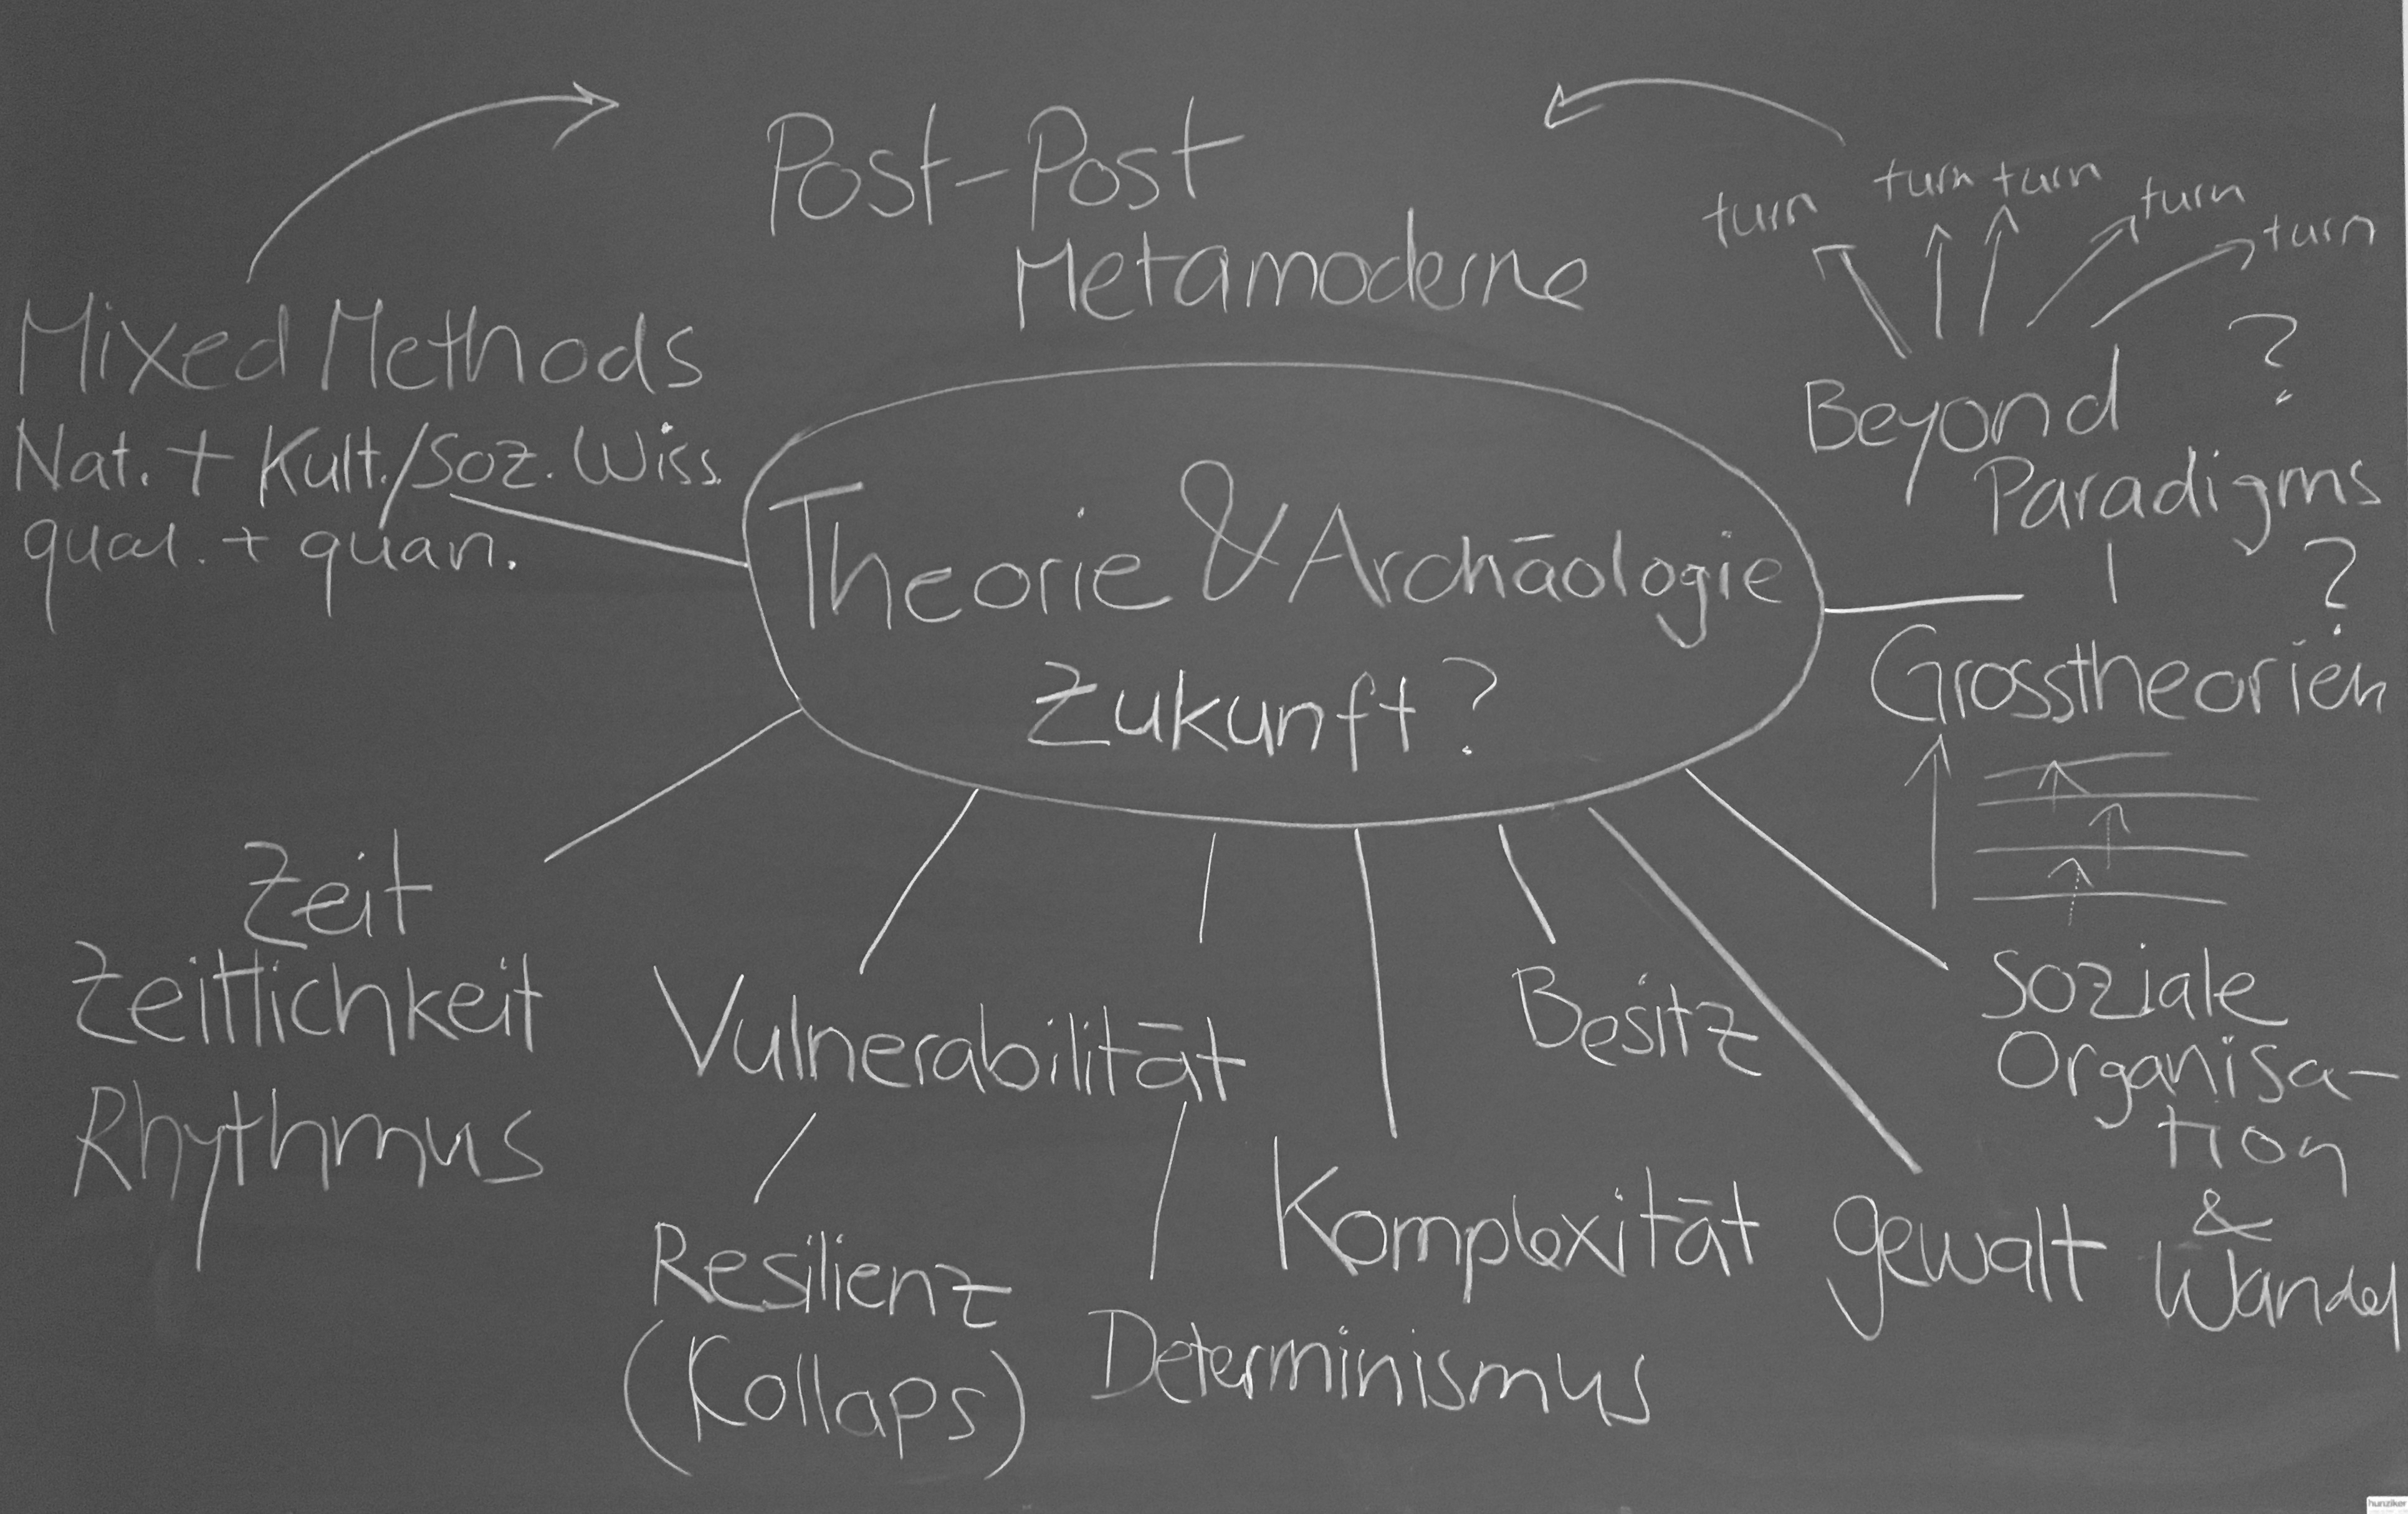 Post-Post
Metamoderne
turn turn turn turn turn
Mixed Methods
Nat. + Kult./Soz. Wiss.
qual. + quan.
Beyond ?
Paradigms
?
Grosstheorien
Theorie & Archäologie
Zukunft?
Zeit
Zeitlichkeit
Rhythmus
Vulnerabilität
Resilienz
(Kollaps)
Determinismus
Komplexität
Besitz
gewalt
Soziale
Organisa-
tion
&
Wandel
hunziker